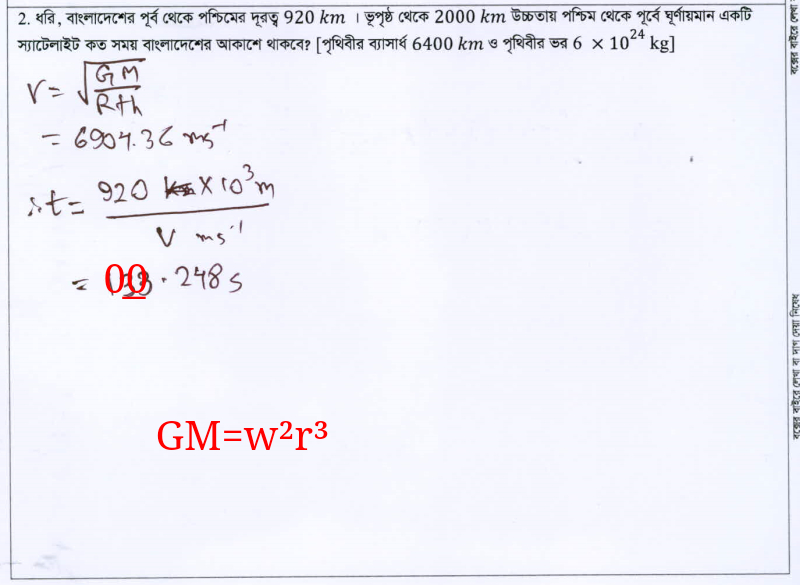 2. ধরি, বাংলাদেশের পূর্ব থেকে পশ্চিমের দূরত্ব 920 km । ভূপৃষ্ঠ থেকে 2000 km উচ্চতায় পশ্চিম থেকে পূর্বে ঘূর্ণায়মান একটি
স্যাটেলাইট কত সময় বাংলাদেশের আকাশে থাকবে? [পৃথিবীর ব্যাসার্ধ 6400 km ও পৃথিবীর ভর 6 × 10²⁴ kg]
V = √(GM/(R+h))
= 6904.36 ms⁻¹
∴ t = (920 × 10³ m)/(V ms⁻¹)
= 133.248 s
00
GM=w²r³
বক্সের বাইরে লেখা বা দাগ দেয়া নিষেধ